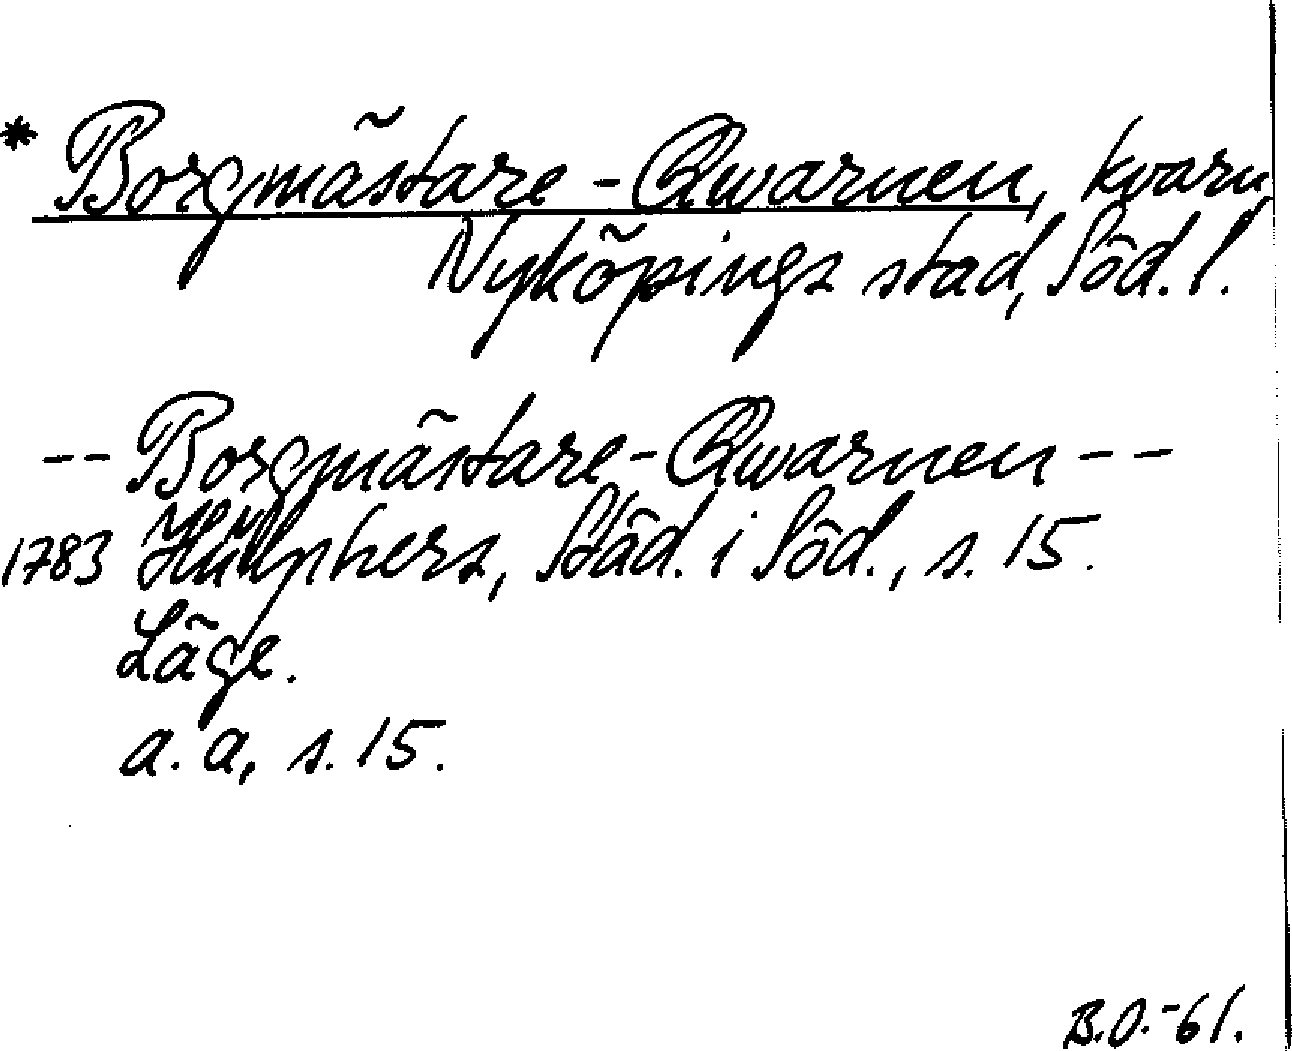 * Borgmästare-Qwarnen, kvarn,
Nyköpings stad, Söd. l.
-- Borgmästare-Qwarnen --
1783 Hülphers, Städ. i Söd., s. 15.
Läge.
a. a, s. 15.
B.O.-61.